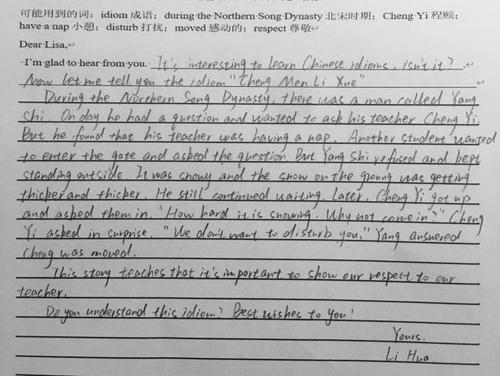 可能用到的词：idiom 成语；during the Northern Song Dynasty 北宋时期；Cheng Yi 程颐；
have a nap 小憩；disturb 打扰；moved 感动的；respect 尊敬
Dear Lisa,
I'm glad to hear from you. It's interesting to learn Chinese idioms, isn't it?
Now let me tell you the idiom "Cheng Men Li Xue"
During the Northern Song Dynasty, there was a man called Yang
Shi. On day he had a question and wanted to ask his teacher Cheng Yi.
But he found that his teacher was having a nap. Another student wanted
to enter the gate and asked the question. But Yang Shi refused and kept
standing outside. It was snowy and the snow on the groung was getting
thicker and thicker. He still continued waiting. Later, Cheng Yi got up
and asked them in. "How hard it is snowing. Why not come in?" Cheng
Yi asked in surprise. "We don't want to disturb you." Yang answered
Cheng was moved.
This story teaches that it's important to show our respect to our
teacher.
Do you understand this idiom? Best wishes to you!
Yours.
Li Hua